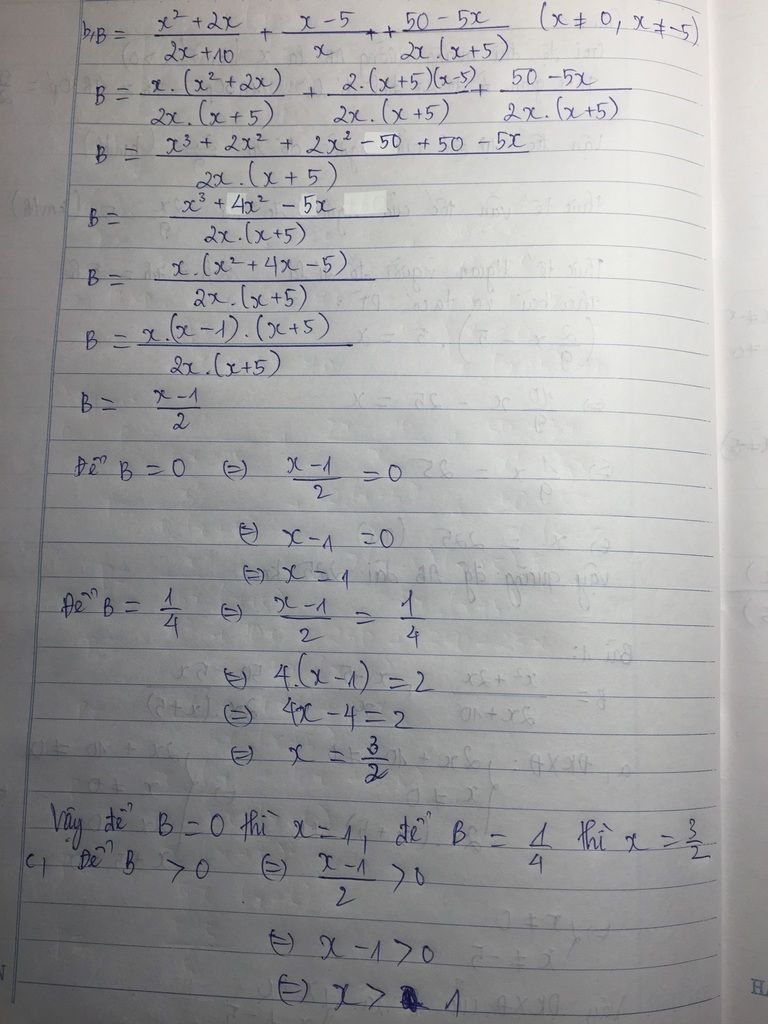 b, B = (x² + 2x)/(2x + 10) + (x - 5)/x + + (50 - 5x)/(2x.(x+5)) (x ≠ 0, x ≠ -5)
B = (x.(x² + 2x))/(2x.(x+5)) + (2.(x+5)(x-5))/(2x.(x+5)) + (50 - 5x)/(2x.(x+5))
B = (x³ + 2x² + 2x² - 50 + 50 - 5x)/(2x.(x+5))
B = (x³ + 4x² - 5x)/(2x.(x+5))
B = (x.(x² + 4x - 5))/(2x.(x+5))
B = (x.(x-1).(x+5))/(2x.(x+5))
B = (x-1)/2
Để B = 0 (=) (x-1)/2 = 0
(=) x-1 = 0
(=) x = 1
Để B = 1/4 (=) (x-1)/2 = 1/4
(=) 4.(x-1) = 2
(=) 4x - 4 = 2
(=) x = 3/2
Vậy để B = 0 thì x = 1, để B = 1/4 thì x = 3/2
c, Để B > 0 (=) (x-1)/2 > 0
(=) x - 1 > 0
(=) x > 1